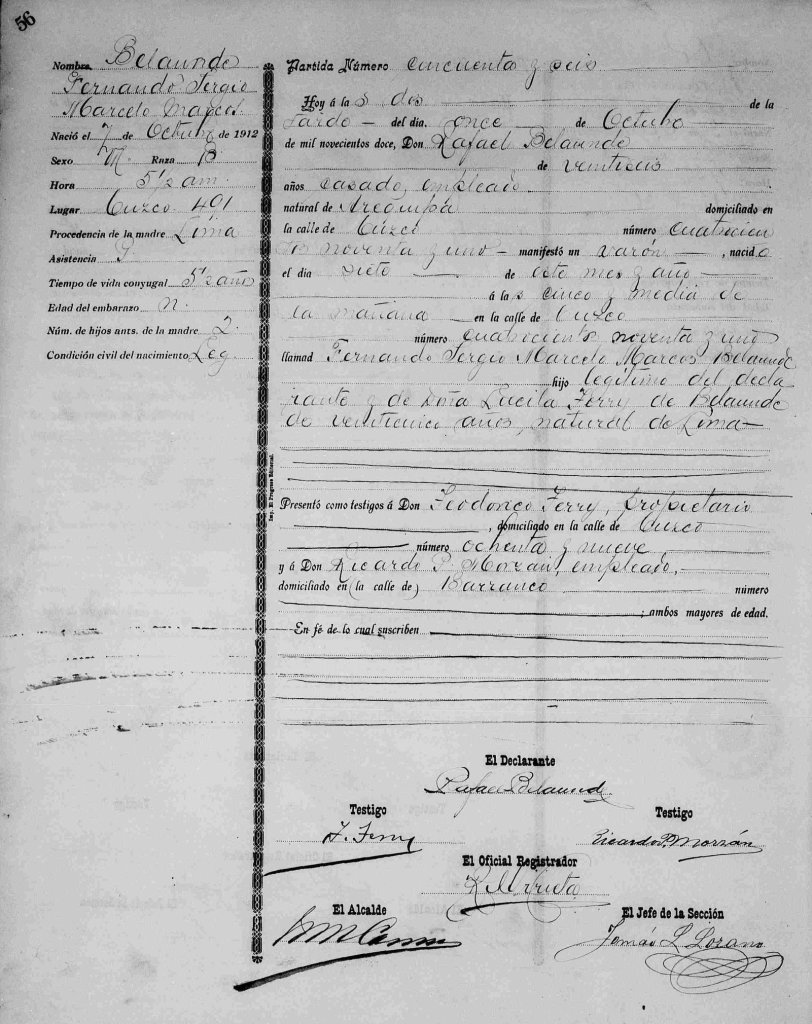 56
Nombre Belaunde
Fernando Sergio
Marcelo Marcos
Nació el 7 de Octubre de 1912
Sexo M. Raza B
Hora 5 1/2 am.
Lugar Cuzco 491
Procedencia de la madre Lima
Asistencia P
Tiempo de vida conyugal 5 1/2 años
Edad del embarazo n.
Núm. de hijos ants. de la madre 2.
Condición civil del nacimiento Leg.
Imp. El Progreso Editorial.
Partida Número cincuenta y seis
Hoy á las dos de la
tarde del dia once de Octubre
de mil novecientos doce, Don Rafael Belaunde
de veintiseis
años casado, empleado
natural de Arequipa domiciliado en
la calle de Cuzco número cuatrocien
tos noventa y uno manifestó un varón, nacido
el dia siete de este mes y año
á las cinco y media de
la mañana en la calle de Cuzco
número cuatrocients noventa y uno
llamad Fernando Sergio Marcelo Marcos Belaunde
hijo legitimo del decla
rante y de Doña Lucila Ferry de Belaunde
de veinticinco años, natural de Lima
Presentó como testigos á Don Teodorico Terry, propietario
, domiciliado en la calle de Cuzco
número ochenta y nueve
y á Don Ricardo P. Morzán, empleado,
domiciliado en (la calle de) Barranco número
; ambos mayores de edad.
En fé de lo cual suscriben
El Declarante
Rafael Belaunde
Testigo Testigo
T. Terry Ricardo P. Morzán
El Oficial Registrador
El Alcalde El Jefe de la Sección
Tomás L. Lozano